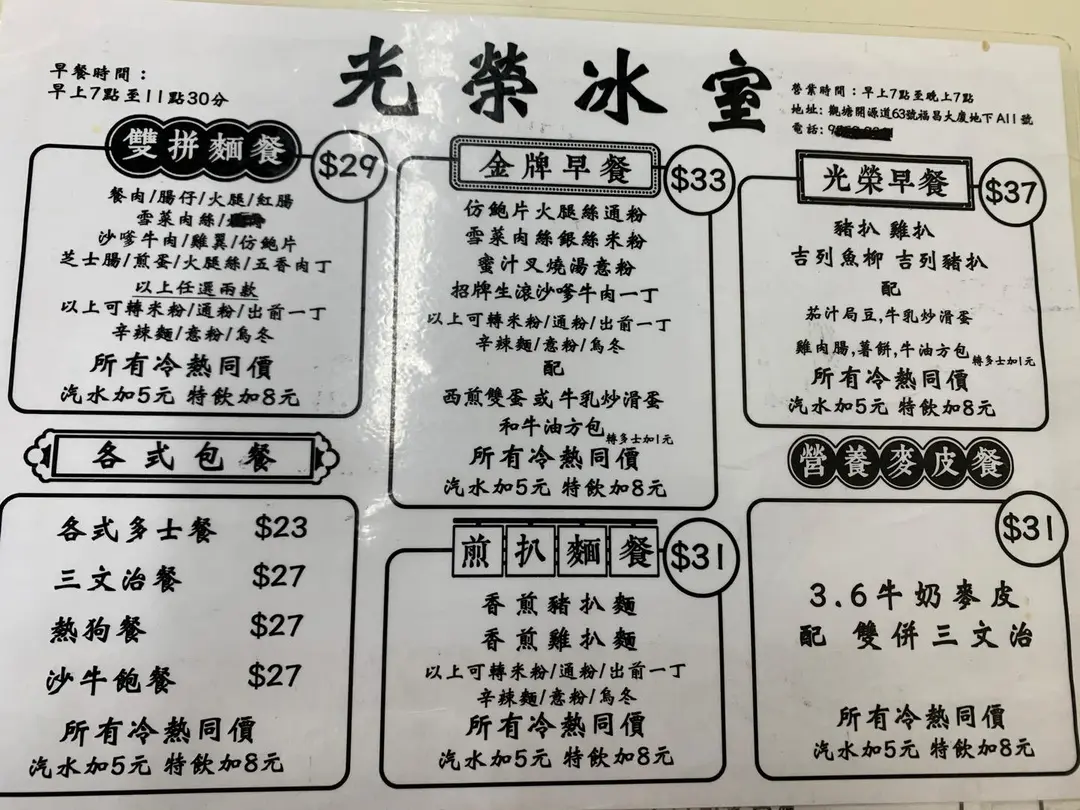 早餐時間：
早上7點至11點30分
光榮冰室
營業時間：早上7點至晚上7點
地址：觀塘開源道63號福昌大廈地下A11號
電話：9
雙拼麵餐
$29
餐肉/腸仔/火腿/紅腸
雪菜肉絲/
沙嗲牛肉/雞翼/仿鮑片
芝士腸/煎蛋/火腿絲/五香肉丁
以上任選兩款
以上可轉米粉/通粉/出前一丁
辛辣麵/意粉/烏冬
所有冷熱同價
汽水加5元 特飲加8元
金牌早餐
$33
仿鮑片火腿絲通粉
雪菜肉絲銀絲米粉
蜜汁叉燒湯意粉
招牌生滾沙嗲牛肉一丁
以上可轉米粉/通粉/出前一丁
辛辣麵/意粉/烏冬
配
西煎雙蛋或牛乳炒滑蛋
和牛油方包轉多士加1元
所有冷熱同價
汽水加5元 特飲加8元
光榮早餐
$37
豬扒 雞扒
吉列魚柳 吉列豬扒
配
茄汁局豆,牛乳炒滑蛋
雞肉腸,薯餅,牛油方包轉多士加1元
所有冷熱同價
汽水加5元 特飲加8元
各式包餐
各式多士餐 $23
三文治餐 $27
熱狗餐 $27
沙牛飽餐 $27
所有冷熱同價
汽水加5元 特飲加8元
煎扒麵餐
$31
香煎豬扒麵
香煎雞扒麵
以上可轉米粉/通粉/出前一丁
辛辣麵/意粉/烏冬
所有冷熱同價
汽水加5元 特飲加8元
營養麥皮餐
$31
3.6牛奶麥皮
配 雙併三文治
所有冷熱同價
汽水加5元 特飲加8元